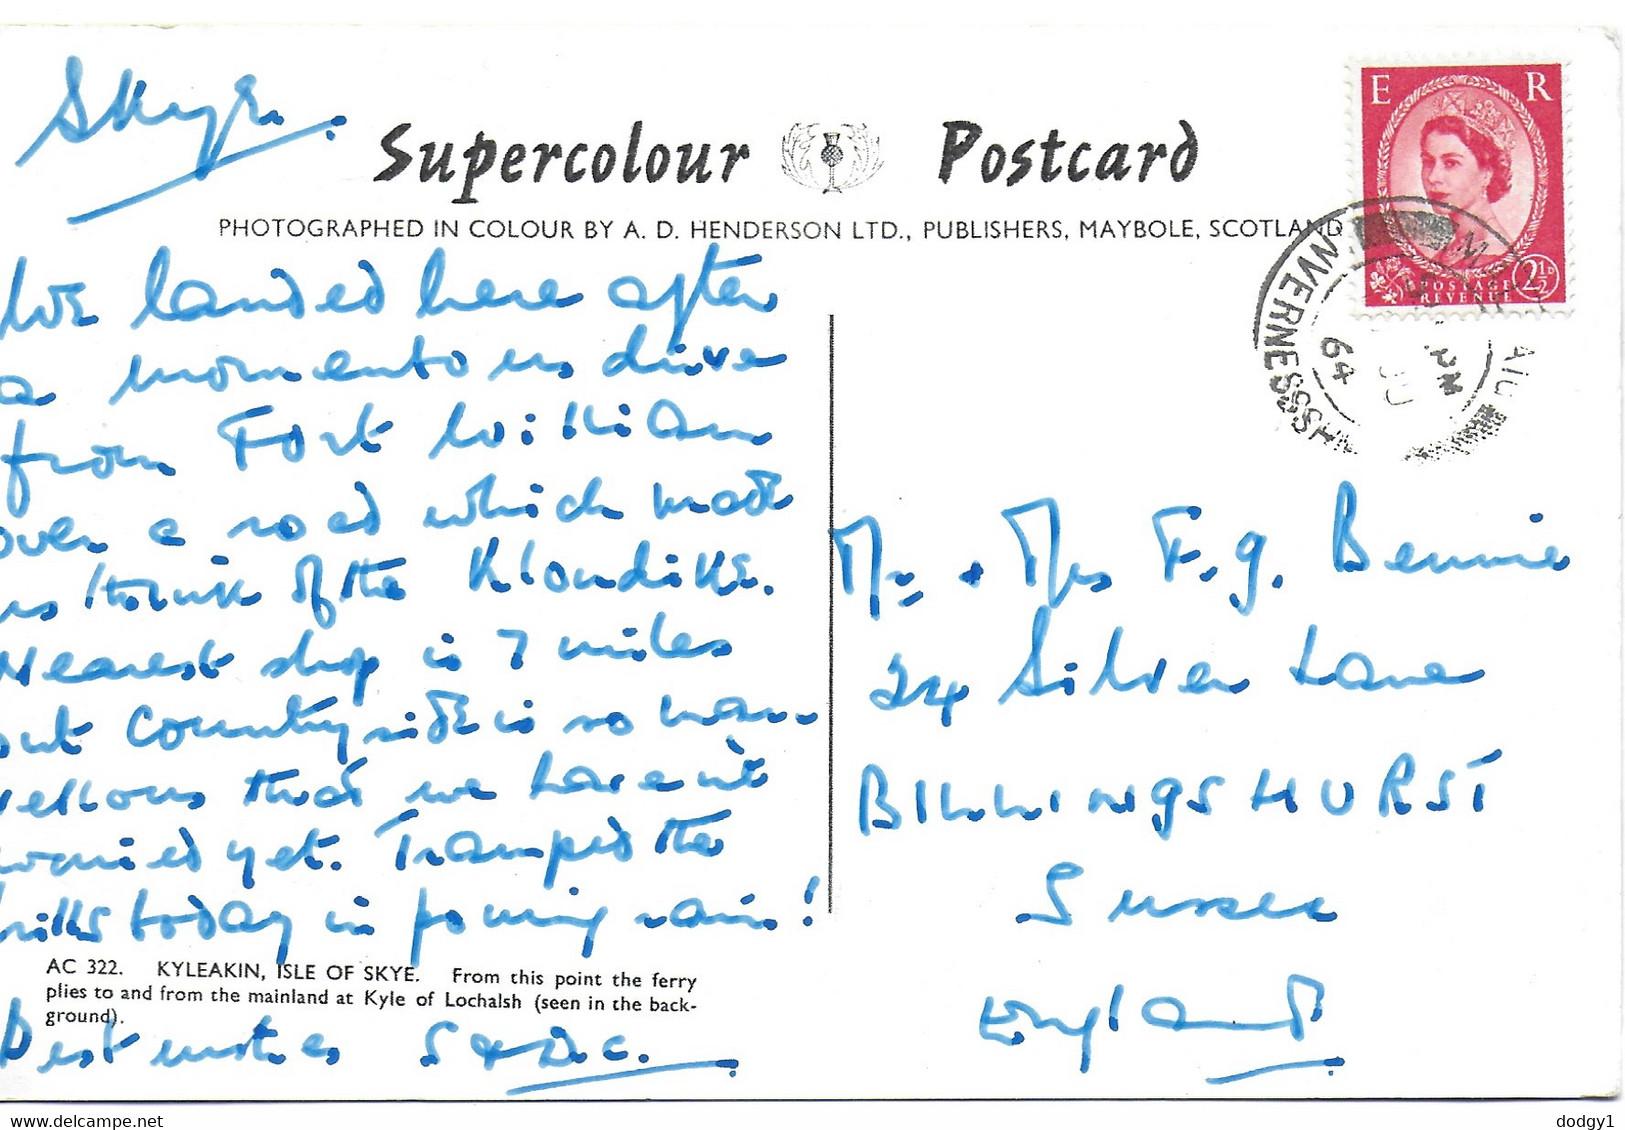 Skye.
Supercolour Postcard
PHOTOGRAPHED IN COLOUR BY A. D. HENDERSON LTD., PUBLISHERS, MAYBOLE, SCOTLAND
E R
POSTAGE REVENUE 2½D
INVERNESS-SHIRE
PM
64
We landed here after
a momentous drive
from Fort William
over a road which made
us think of the Klondike.
Nearest shop is 7 miles
but countryside is so mar-
vellous that we haven't
worried yet. Tramped the
hills today in pouring rain!
AC 322. KYLEAKIN, ISLE OF SKYE. From this point the ferry
plies to and from the mainland at Kyle of Lochalsh (seen in the back-
ground).
Best wishes
Mr + Mrs F. G. Bennie
24 Silver Lane
BILLINGSHURST
Sussex
England
dodgy1